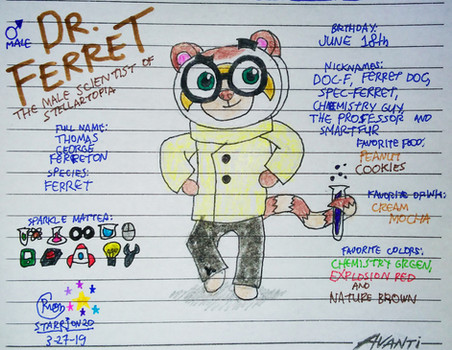 MALE
DR.
FERRET
THE MALE SCIENTIST OF
STELLARTOPIA
FULL NAME:
THOMAS
GEORGE
FERRETON
SPECIES:
FERRET
SPARKLE MATTER:
STARRION20
3-27-19
BIRTHDAY:
JUNE 18th
NICKNAMES:
DOC-F, FERRET DOC,
SPEC-FERRET,
CHEMISTRY GUY,
THE PROFESSOR AND
SMARTFUR
FAVORITE FOOD:
PEANUT
COOKIES
FAVORITE
CREAM
MOCHA
FAVORITE COLORS:
CHEMISTRY GREEN,
EXPLOSION RED
AND
NATURE BROWN
AVANTI